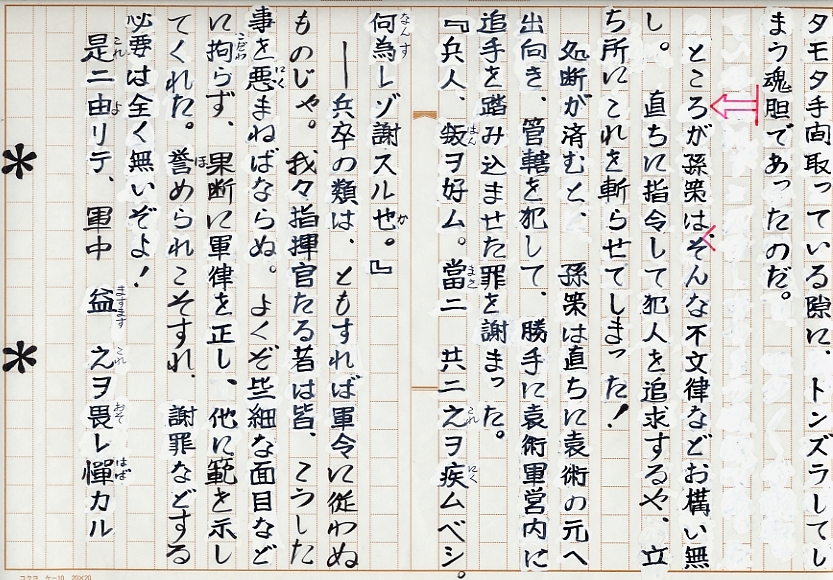 タモタ手間取っている隙に、トンズラしてし
まう魂胆であったのだ。
ところが孫策は、そんな不文律などお構い無
し。　直ちに指令して犯人を追求するや、立
ち所にこれを斬らせてしまった！
処断が済むと、　孫策は直ちに袁術の元へ
出向き、管轄を犯して、勝手に袁術軍営内に
追手を踏み込ませた罪を謝まった。
『兵人、叛ヲ好ム。當ニ　共ニ之ヲ疾ムベシ。
はん　まさ　これ　にく
何為レゾ謝スル也。』
なんす　か
――兵卒の類は、ともすれば軍令に従わぬ
ものじゃ。我々指揮官たる者は皆、こうした
事を悪まねばならぬ。よくぞ些細な面目など
にく
に拘らず、果断に軍律を正し、他に範を示し
こだわ
てくれた。誉められこそすれ、謝罪などする
ほ
必要は全く無いぞよ！
是ニ由リテ、軍中　益　之ヲ畏レ憚カル
これ　よ　ますます　これ　おそ　はば
＊　＊
コクヨ　ケー10　20×20